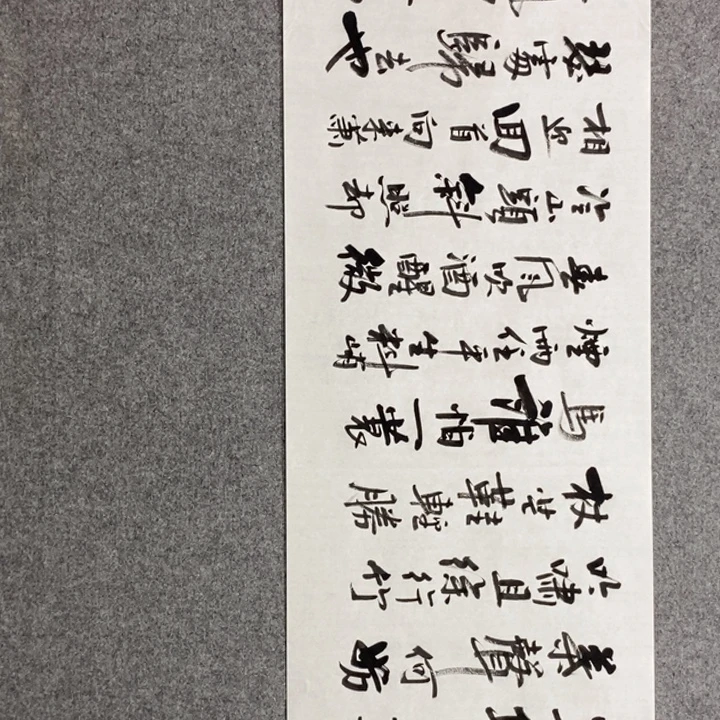 葉聲何妨
吟嘯且徐行竹
杖芒鞋輕勝
馬誰怕一蓑
煙雨任平生料峭
春風吹酒醒微
冷山頭斜照却
相迎回首向來蕭
瑟處歸去也